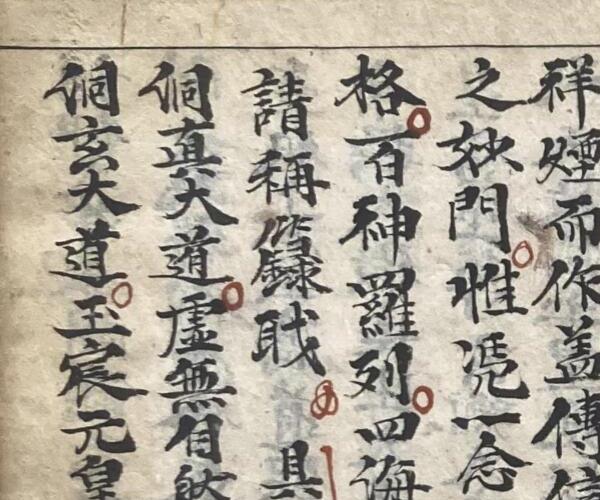 祥煙而作盖傳信
之妙門惟凴一念
格百神羅列四海
請稱籙職具
侗真大道虛無自然
侗玄大道玉宸元皇